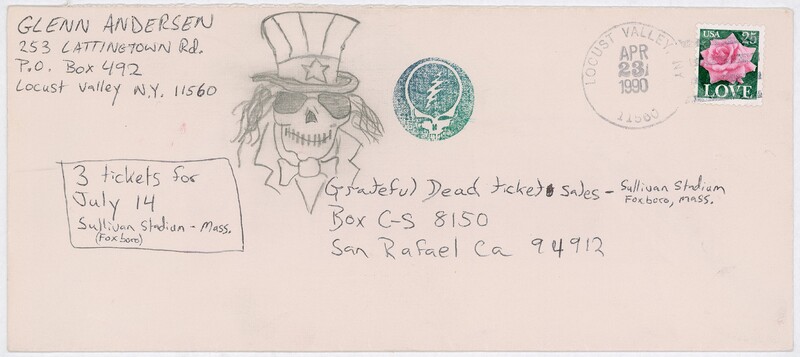 GLENN ANDERSEN
253 LATTINGTOWN Rd.
P.O. Box 492
Locust Valley N.Y. 11560
LOCUST VALLEY, NY
APR
23
1990
11560
USA 25
LOVE
3 tickets for
July 14
Sullivan Stadium - Mass.
(Foxboro)
Grateful Dead ticket sales - Sullivan Stadium
Foxboro, Mass.
Box C-S 8150
San Rafael Ca 94912